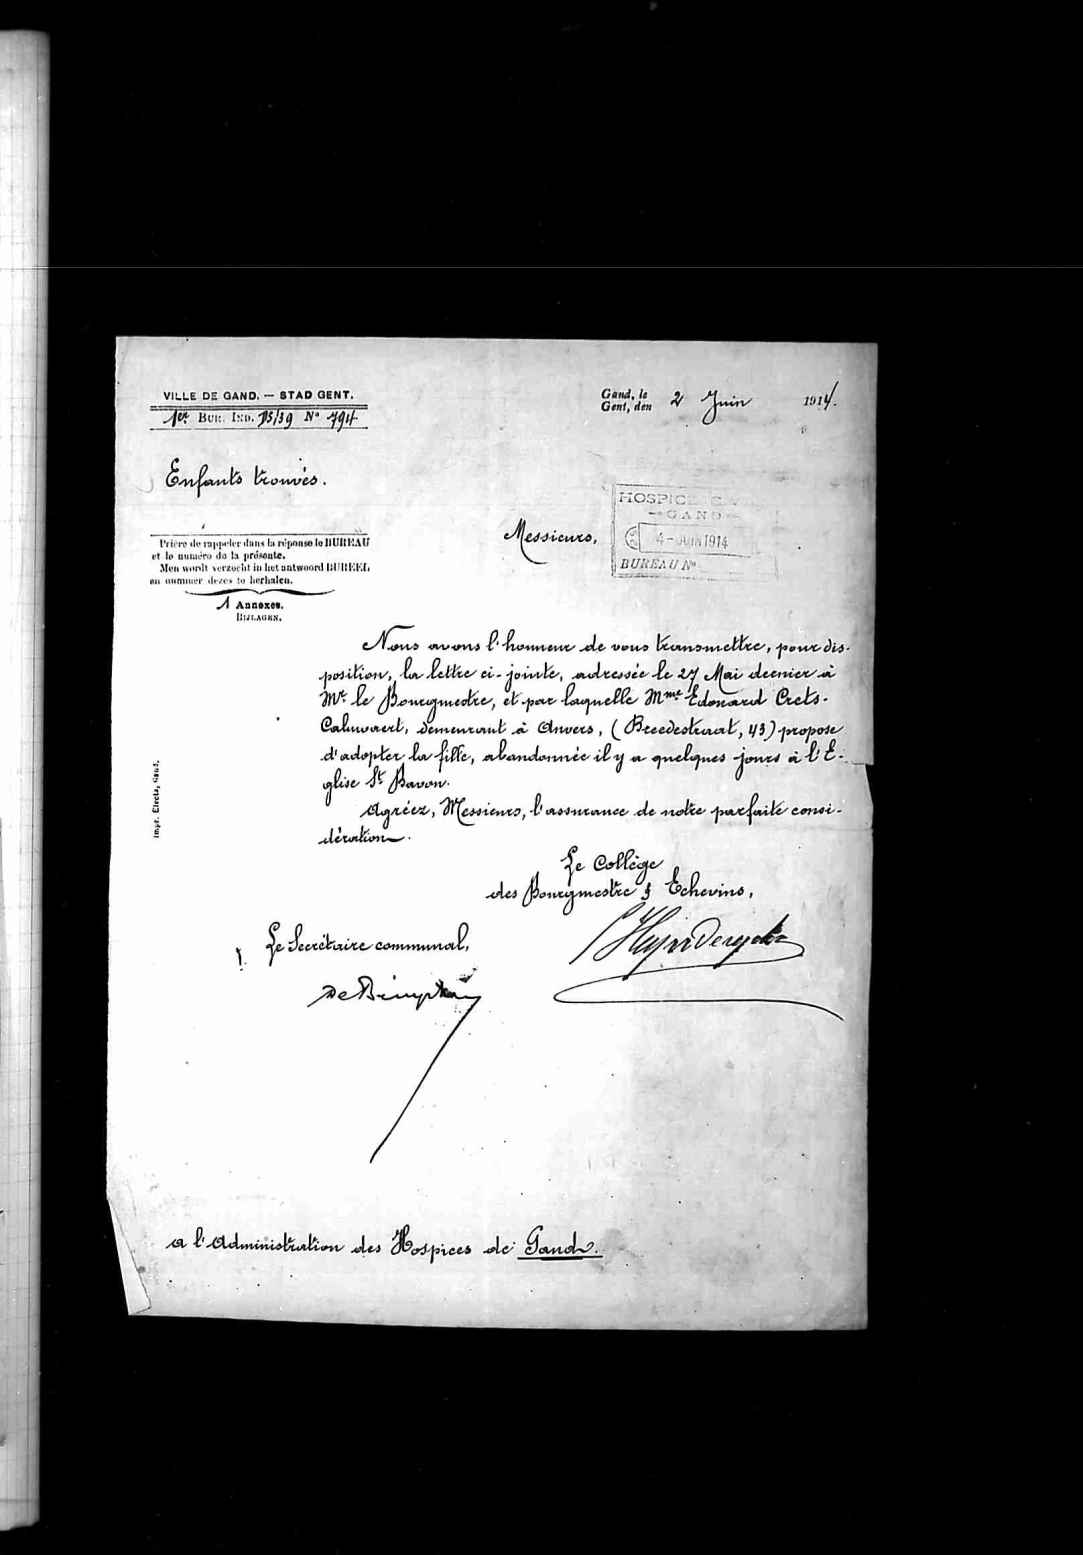 VILLE DE GAND. — STAD GENT.
1er BUR. IND. B/39 N° 794
Gand, le
Gent, den 2 Juin 1914.
Enfants trouvés.
Prière de rappeler dans la réponse le BUREAU
et le numéro de la présente.
Men wordt verzocht in het antwoord BUREEL
en nummer dezes te herhalen.
1 Annexes.
BIJLAGEN.
HOSPICES
GAND
4 - JUIN 1914
BUREAU N°
Messieurs,
Nous avons l'honneur de vous transmettre, pour dis-
position, la lettre ci-jointe, adressée le 27 Mai dernier à
Mr. le Bourgmestre, et par laquelle Mme Edouard Crets-
Caluwaert, demeurant à Anvers, (Breedestraat, 43) propose
d'adopter la fille, abandonnée il y a quelques jours à l'E-
glise St Bavon.
Agréez, Messieurs, l'assurance de notre parfaite consi-
dération.
Le Collège
des Bourgmestre & Echevins,
Le Secrétaire communal,
Impr. Gand.
A l'Administration des Hospices de Gand.